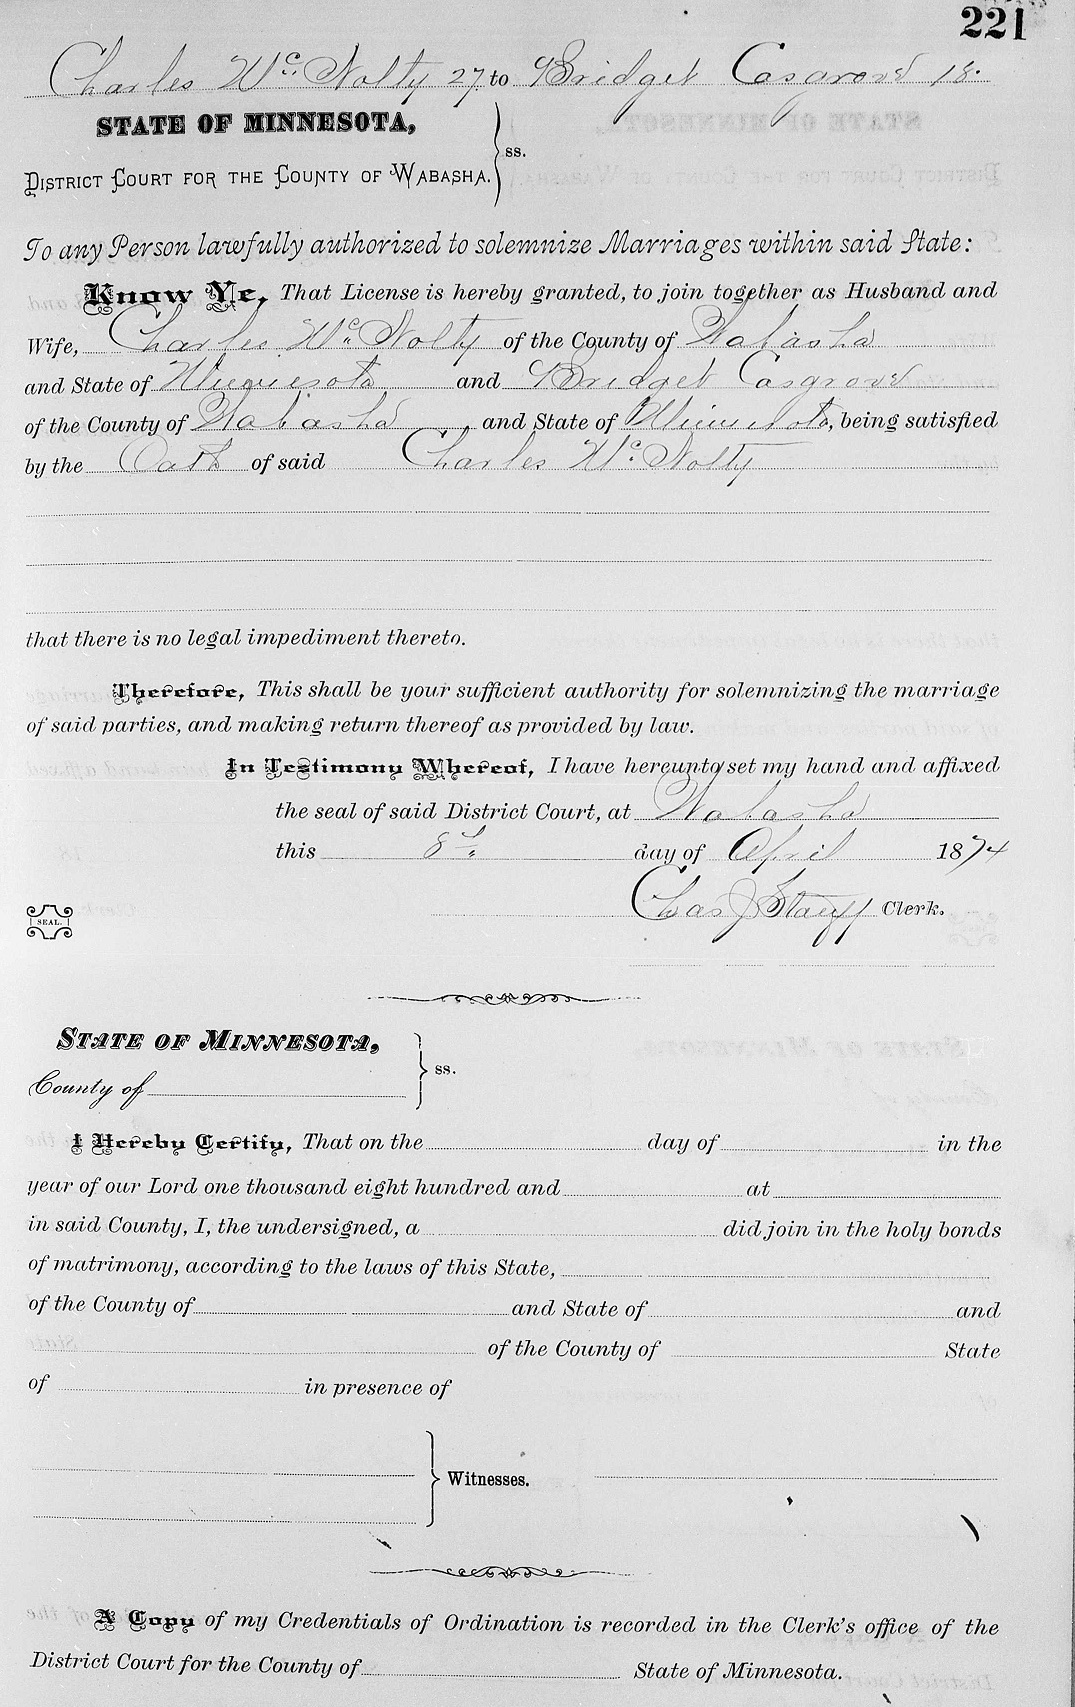 221
Charles Mc. Nolty 27 to Bridget Casgrove 18.
STATE OF MINNESOTA,
DISTRICT COURT FOR THE COUNTY OF WABASHA.
ss.
To any Person lawfully authorized to solemnize Marriages within said State:
Know Ye, That License is hereby granted, to join together as Husband and
Wife, Charles Mc. Nolty of the County of Wabasha
and State of Minnesota and Bridget Casgrove
of the County of Wabasha and State of Minnesota, being satisfied
by the Oath of said Charles Mc. Nolty
that there is no legal impediment thereto.
Therefore, This shall be your sufficient authority for solemnizing the marriage
of said parties, and making return thereof as provided by law.
In Testimony Whereof, I have hereunto set my hand and affixed
the seal of said District Court, at Wabasha
this 8th day of April 1874
SEAL.
Chas J Stauff Clerk.
STATE OF MINNESOTA,
County of
ss.
I Hereby Certify, That on the day of in the
year of our Lord one thousand eight hundred and at
in said County, I, the undersigned, a did join in the holy bonds
of matrimony, according to the laws of this State,
of the County of and State of and
of the County of State
of in presence of
Witnesses.
A Copy of my Credentials of Ordination is recorded in the Clerk's office of the
District Court for the County of State of Minnesota.